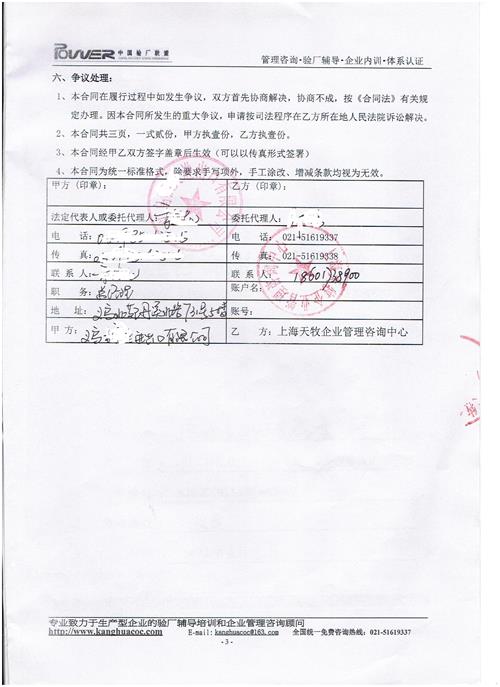 POWER 中国验厂联盟
管理咨询·验厂辅导·企业内训·体系认证
六、争议处理：
1、本合同在履行过程中如发生争议，双方首先协商解决，协商不成，按《合同法》有关规
定办理。因本合同所发生的重大争议，申请按司法程序在乙方所在地人民法院诉讼解决。
2、本合同共三页，一式贰份，甲方执壹份，乙方执壹份。
3、本合同经甲乙双方签字盖章后生效（可以以传真形式签署）
4、本合同为统一标准格式，除要求手写项外，手工涂改、增减条款均视为无效。
甲方（印章）： 乙方（印章）：
法定代表人或委托代理人： 委托代理人：
电 话： 电 话：021-51619337
传 真： 传 真：021-51619338
联 系 人： 联 系 人：
职 务：总经理 账户名：
地 址： 账号：
甲 方： 出口有限公司 乙 方：上海天牧企业管理咨询中心
专业致力于生产型企业的验厂辅导培训和企业管理咨询顾问
http://www.kanghuacoc.com E-mail:kanghuacoc@163.com 全国统一免费咨询热线：021-51619337
- 3 -